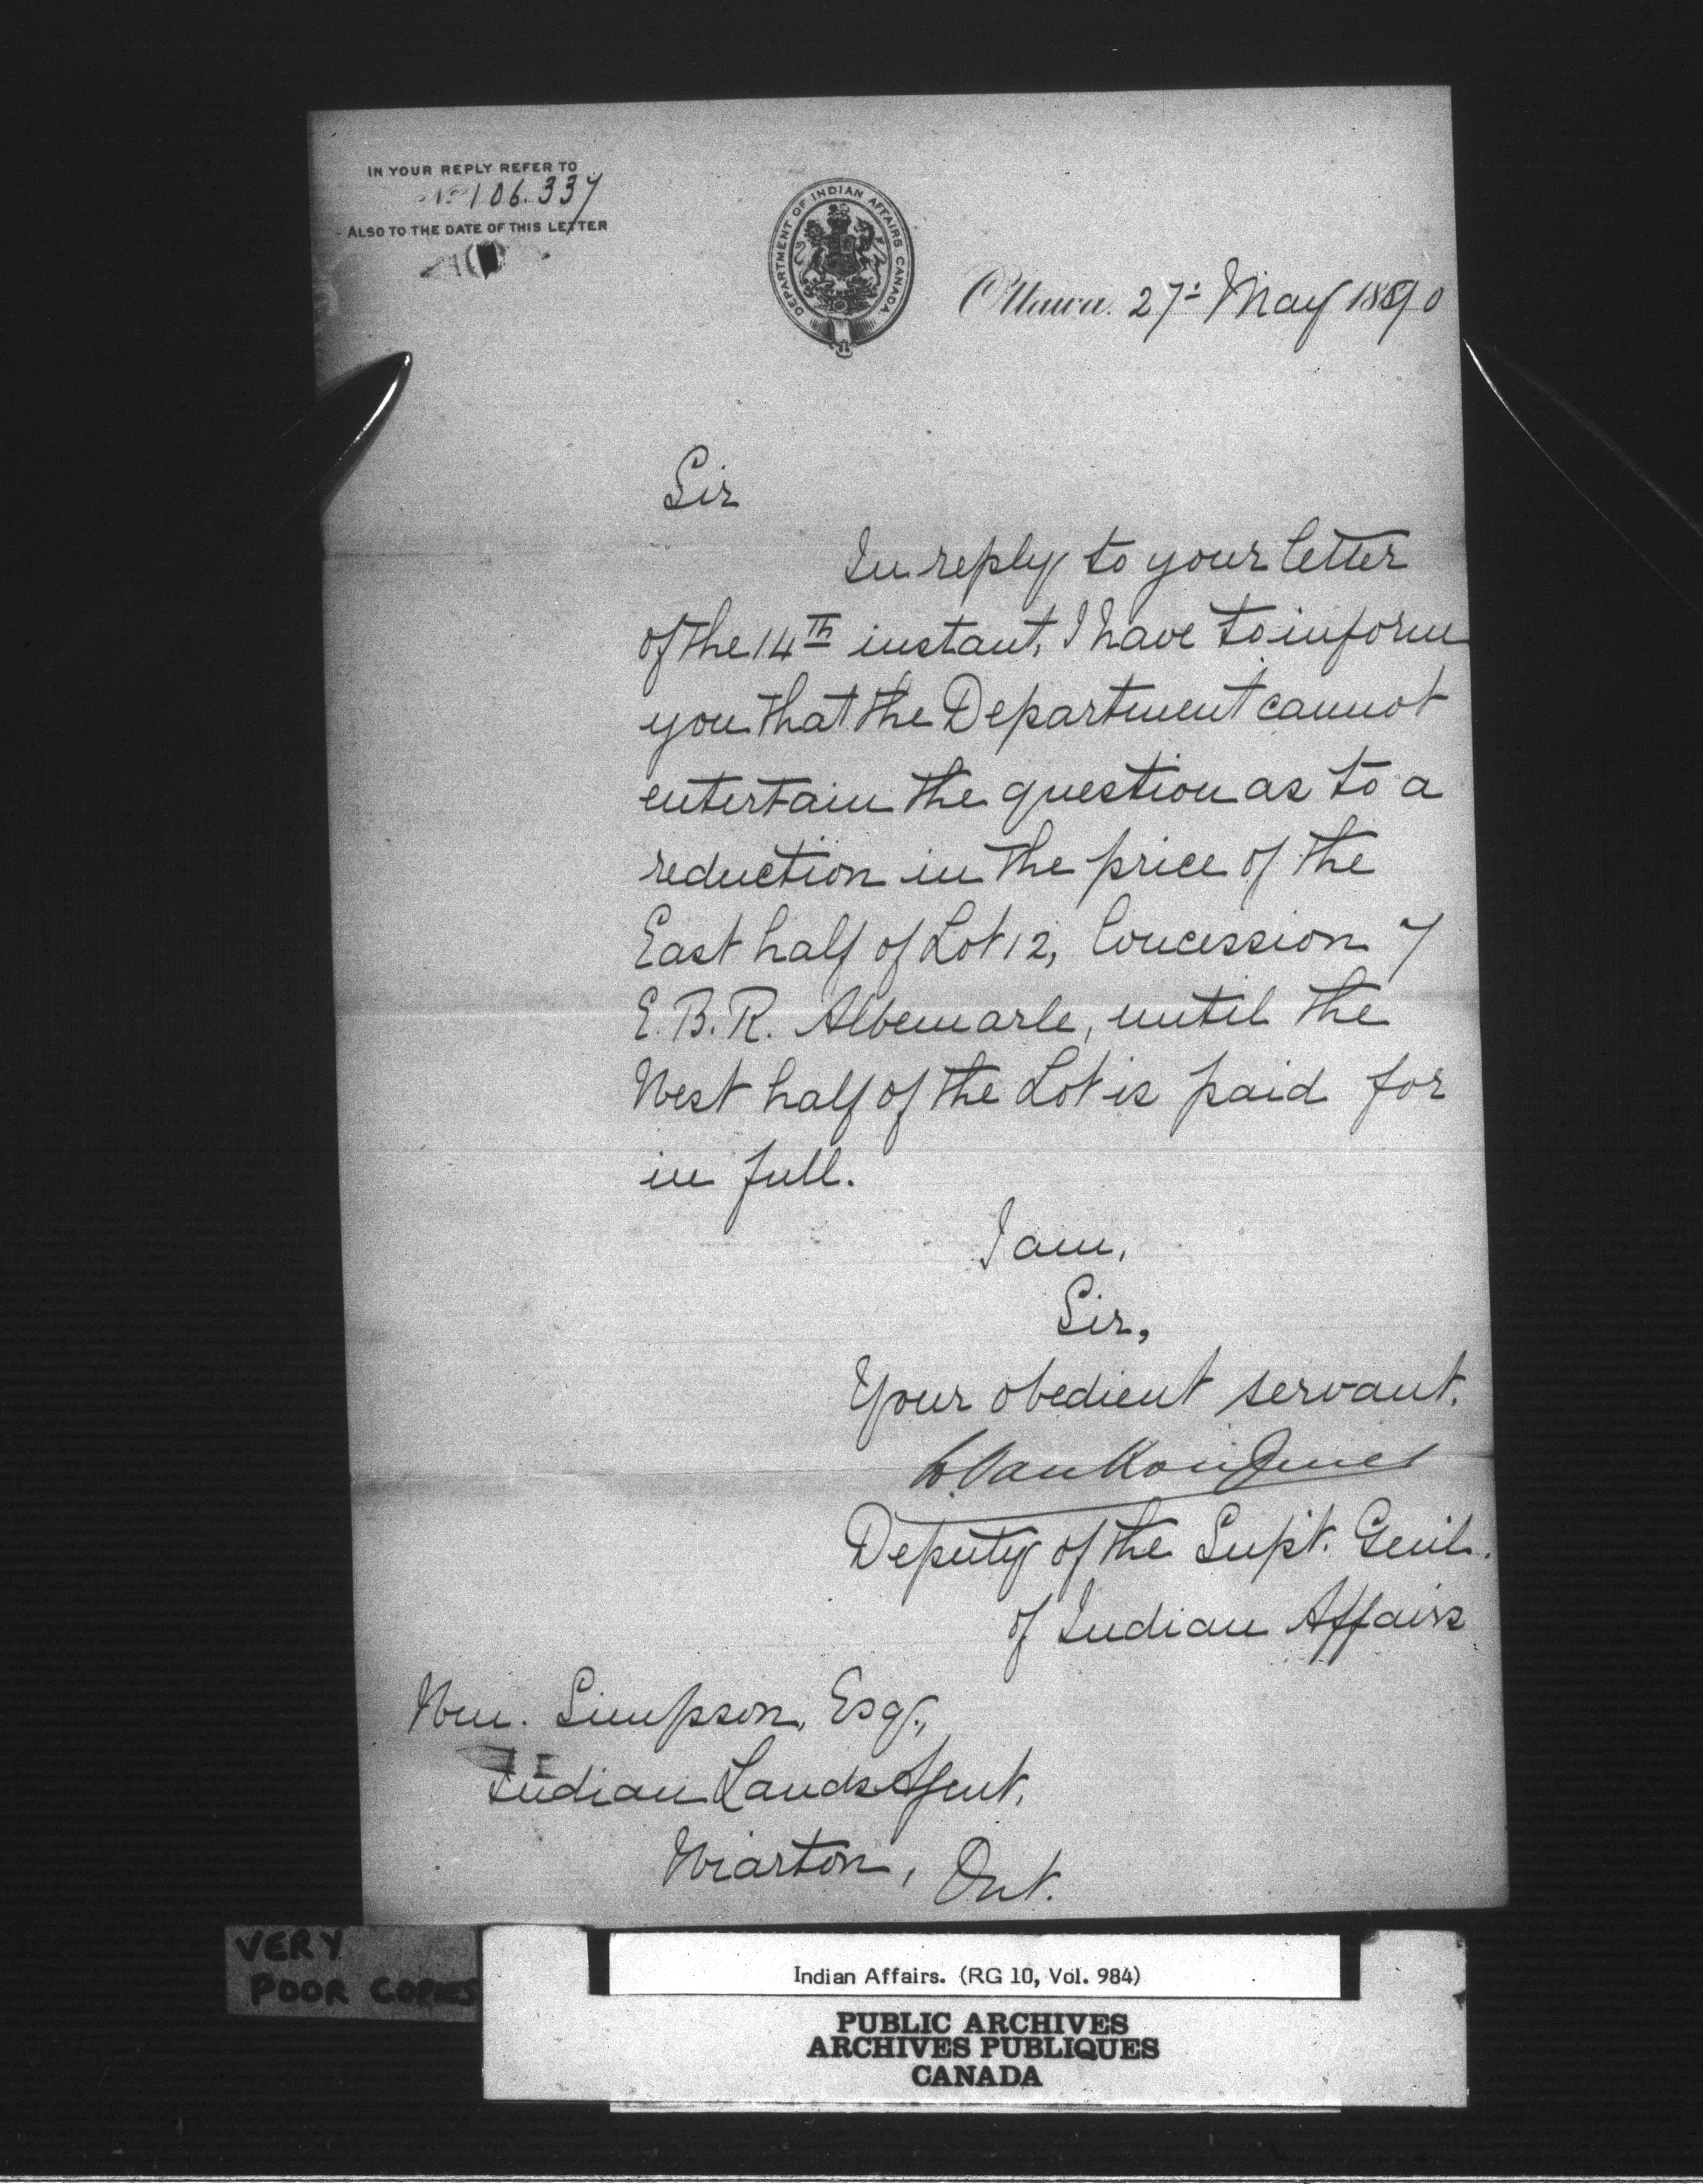 IN YOUR REPLY REFER TO
No 106.337
ALSO TO THE DATE OF THIS LETTER
DEPARTMENT OF INDIAN AFFAIRS CANADA
Ottawa. 27th May 1890
Sir
In reply to your letter
of the 14th instant, I have to inform
you that the Department cannot
entertain the question as to a
reduction in the price of the
East half of Lot 12, Concession 7
E.B.R. Albemarle, until the
West half of the Lot is paid for
in full.
I am,
Sir,
Your obedient servant,
L. VanKoughnet
Deputy of the Supt. Genl.
of Indian Affairs
Wm. Simpson, Esq.,
Indian Lands Agent,
Wiarton, Ont.
VERY
POOR COPIES
Indian Affairs. (RG 10, Vol. 984)
PUBLIC ARCHIVES
ARCHIVES PUBLIQUES
CANADA